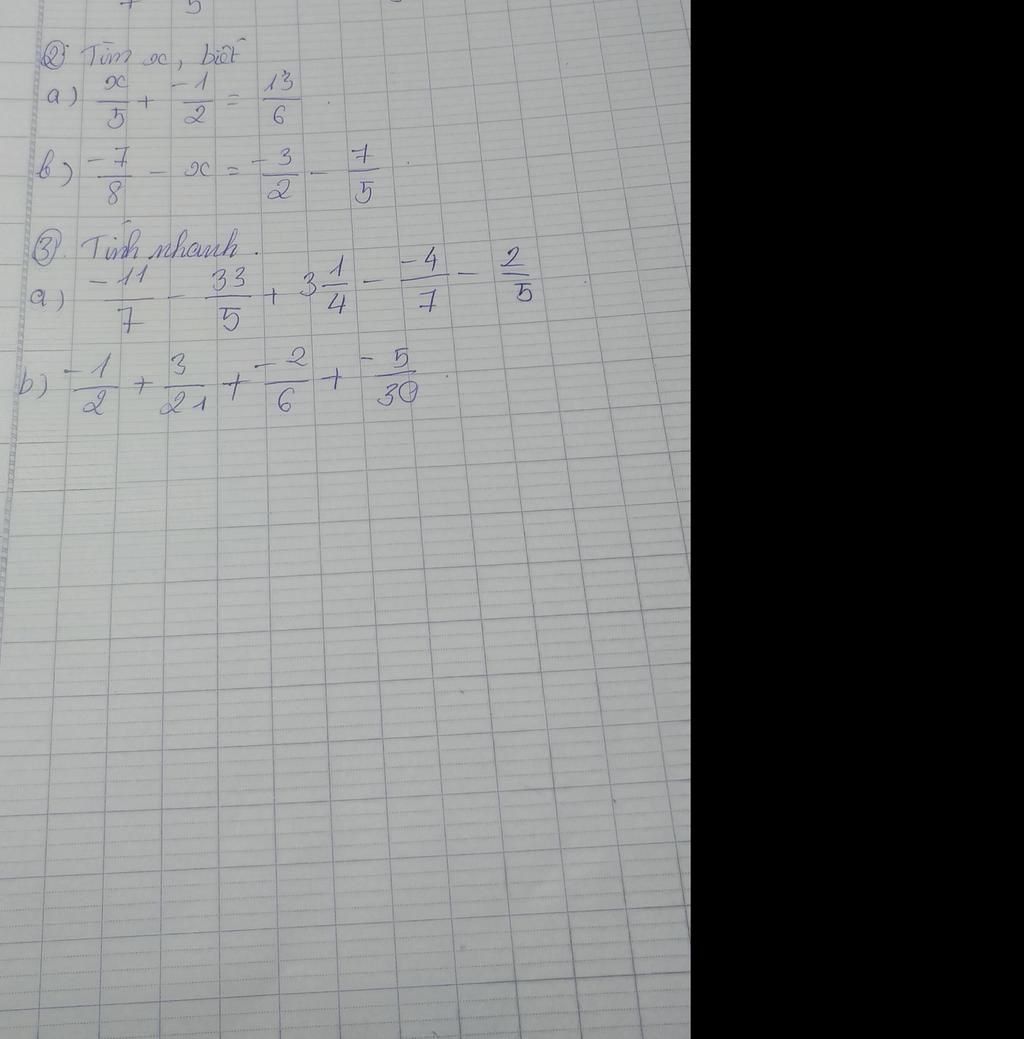 7 5
② Tìm x, biết
a) x/5 + -1/2 = 13/6
b) -7/8 - x = -3/2 - 7/5
③. Tính nhanh.
a) -11/7 - 33/5 + 3 1/4 - -4/7 - 2/5
b) -1/2 + 3/21 + -2/6 + -5/30